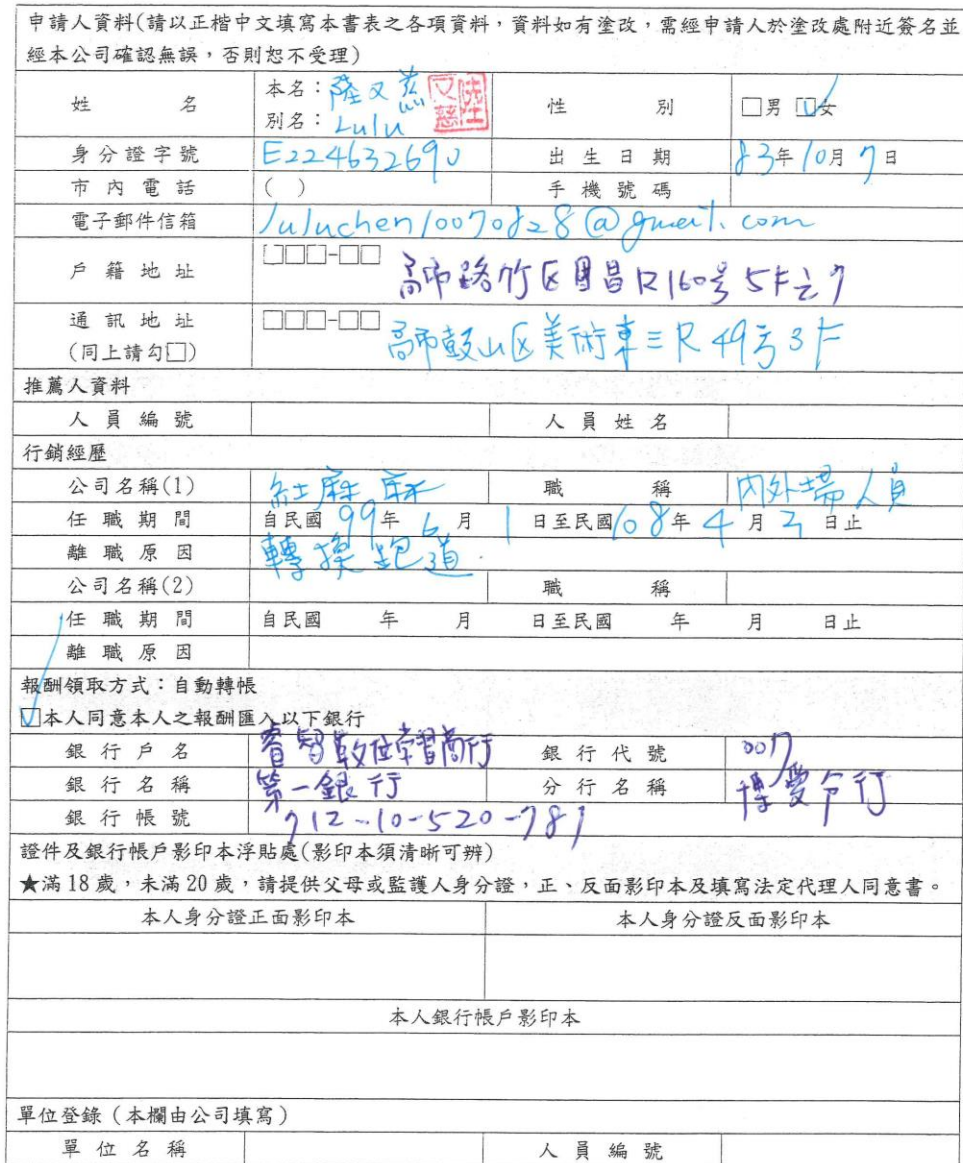 申請人資料(請以正楷中文填寫本書表之各項資料，資料如有塗改，需經申請人於塗改處附近簽名並
經本公司確認無誤，否則恕不受理)
姓 名 本名：陸又慈 陸又慈 性 別 □男 ☑女
別名：Lulu
身分證字號 E224632690 出生日期 83年10月7日
市內電話 ( ) 手機號碼
電子郵件信箱 luluchen10070828@gmail.com
戶籍地址 □□□-□□ 高市路竹区国昌R160号5F之7
通訊地址 □□□-□□ 高市鼓山区美術東三R49号3F
(同上請勾□)
推薦人資料
人員編號 人員姓名
行銷經歷
公司名稱(1) 紅麻麻 職 稱 內外場人員
任職期間 自民國99年6月1日至民國108年4月2日止
離職原因 轉換跑道.
公司名稱(2) 職 稱
任職期間 自民國 年 月 日至民國 年 月 日止
離職原因
報酬領取方式：自動轉帳
☑本人同意本人之報酬匯入以下銀行
銀行戶名 睿智數位學習商行 銀行代號 007
銀行名稱 第一銀行 分行名稱 博愛分行
銀行帳號 712-10-520-787
證件及銀行帳戶影印本浮貼處(影印本須清晰可辨)
★滿18歲，未滿20歲，請提供父母或監護人身分證，正、反面影印本及填寫法定代理人同意書。
本人身分證正面影印本 本人身分證反面影印本
本人銀行帳戶影印本
單位登錄（本欄由公司填寫）
單位名稱 人員編號